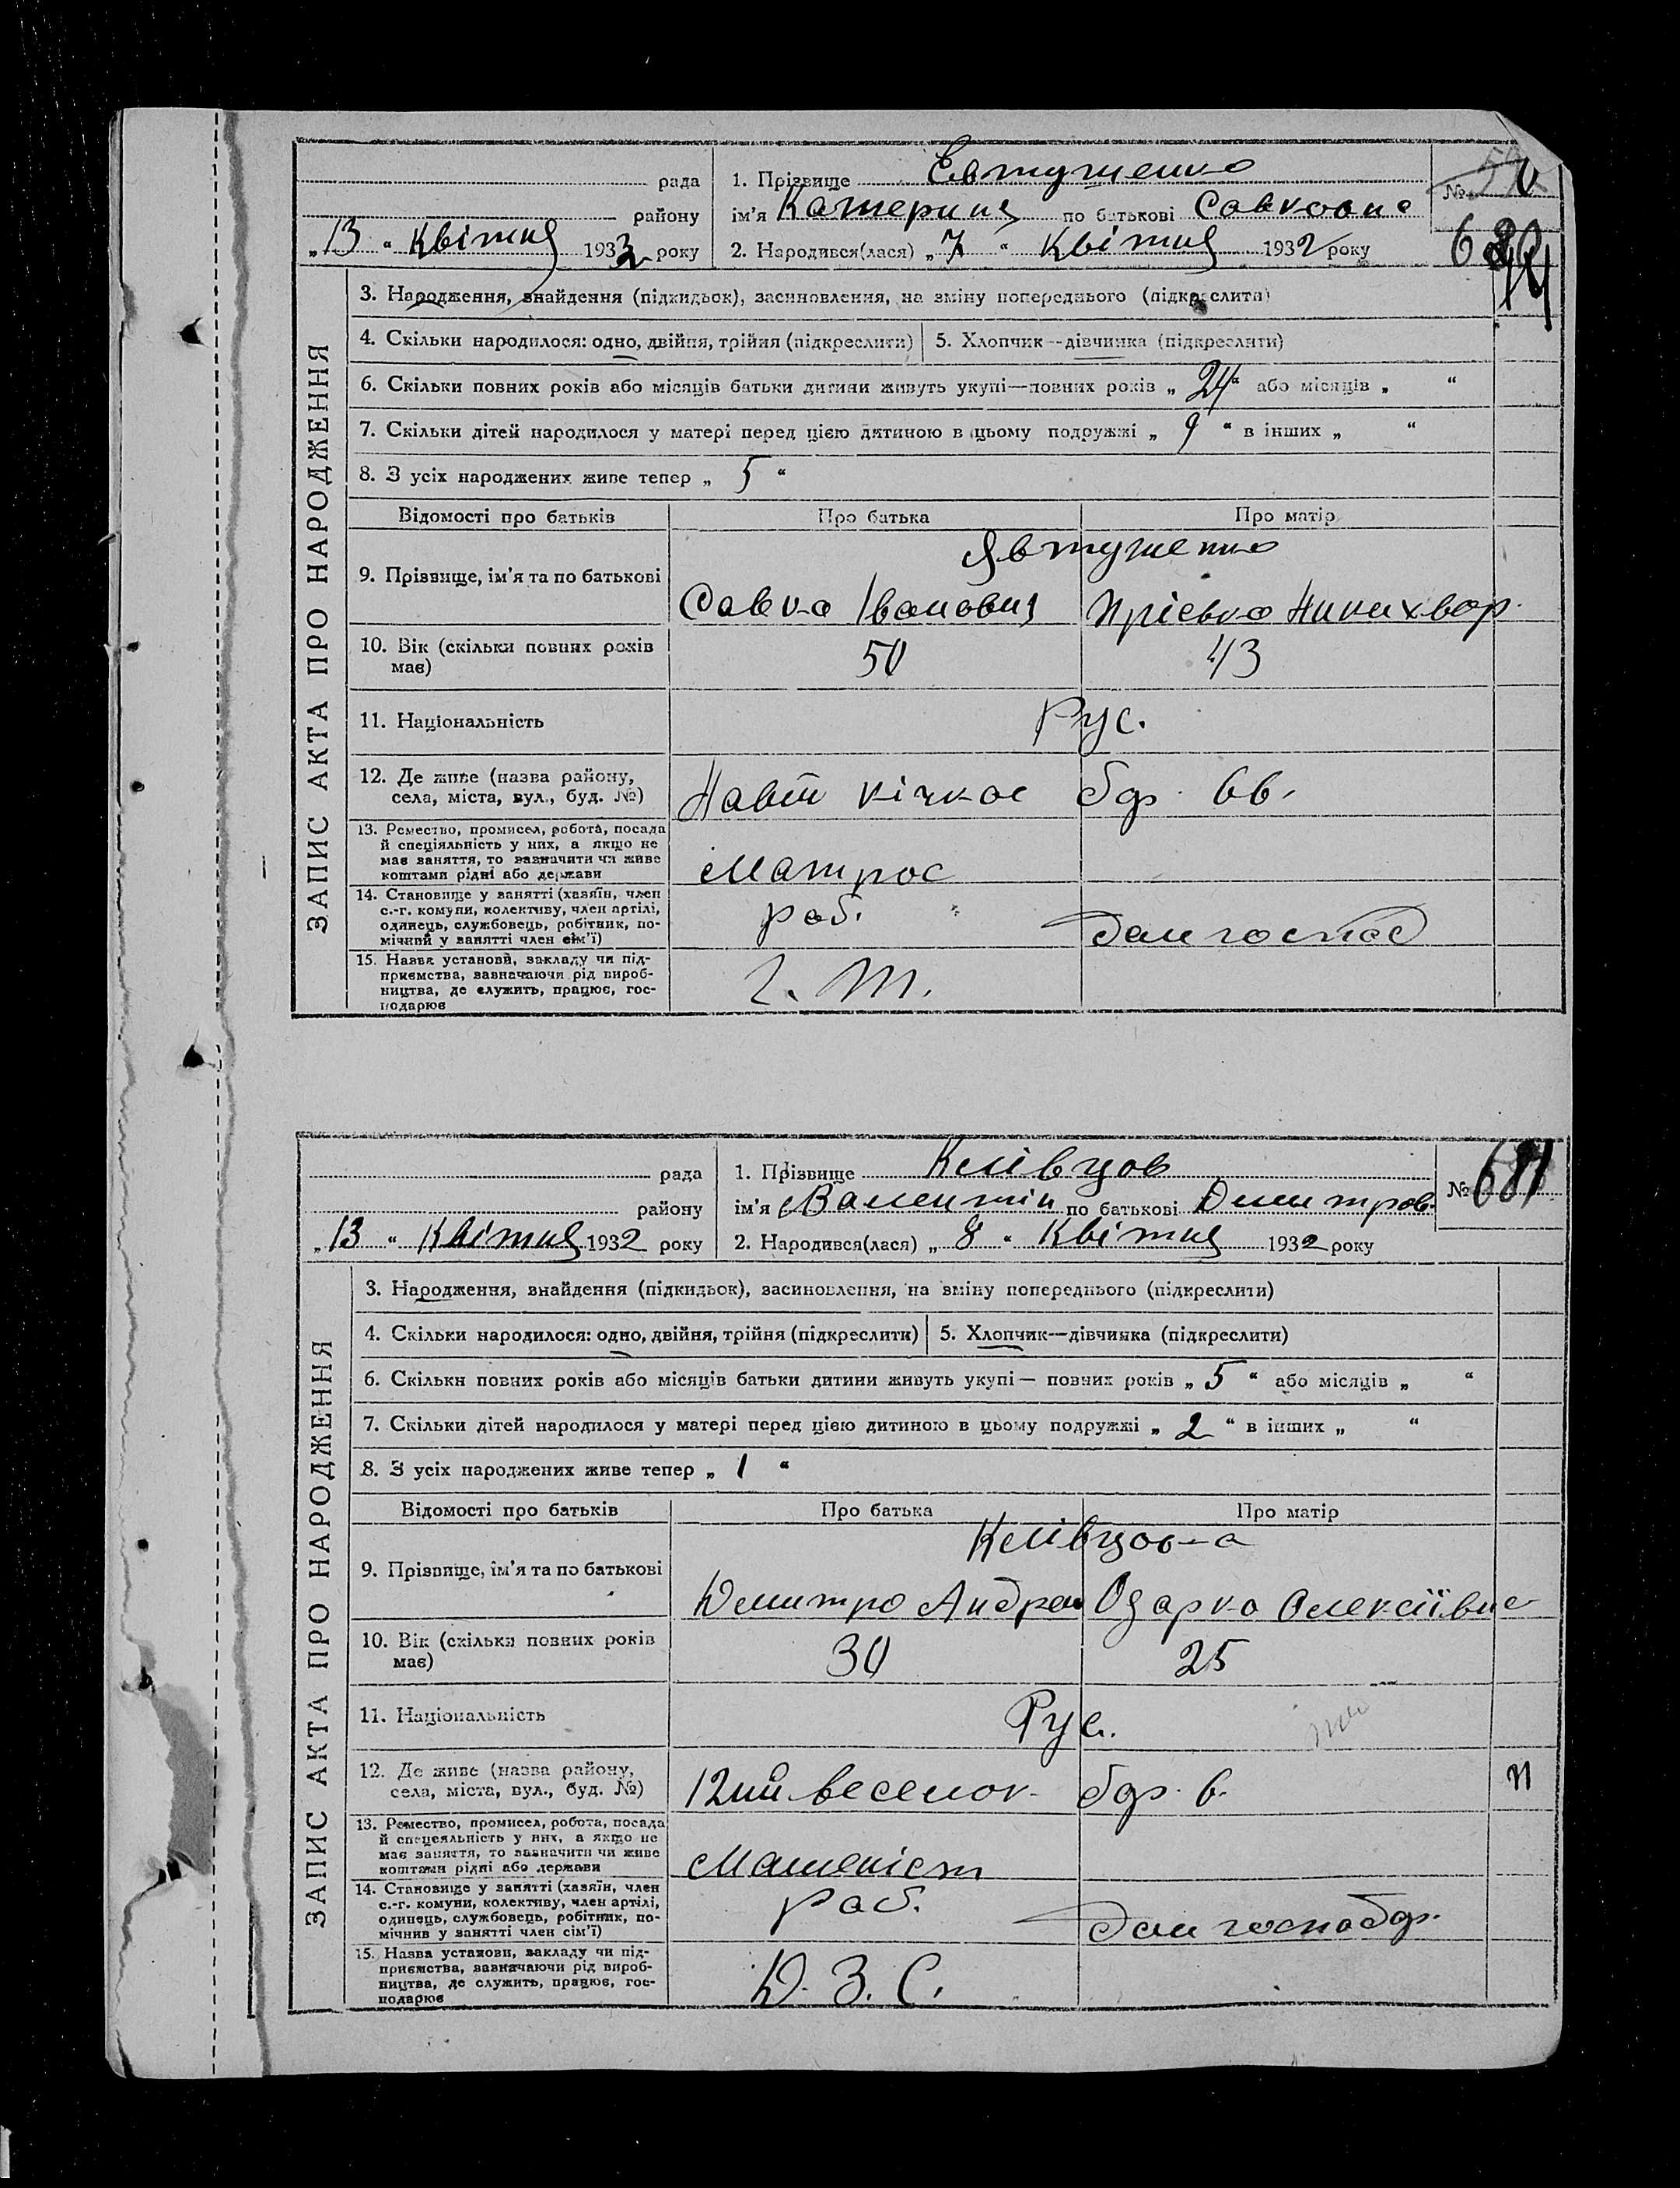 рада
району
„13 “ Квітня 1932 року
1. Прізвище Евтушенко
ім’я Катерина по батькові Савковна
2. Народився(лася) „7 “ Квітня 1932 року
№
ЗАПИС АКТА ПРО НАРОДЖЕННЯ
3. Народження, знайдення (підкидьок), засиновлення, на зміну попереднього (підкреслити)
4. Скільки народилося: одно, двійня, трійня (підкреслити) 5. Хлопчик—дівчинка (підкреслити)
6. Скільки повних років або місяців батьки дитини живуть укупі—повних років „ 24 “ або місяців „ “
7. Скільки дітей народилося у матері перед цією дитиною в цьому подружжі „ 9 “ в інших „ “
8. З усіх народжених живе тепер „ 5 “
Відомості про батьків Про батька Про матір
Явтушенко
9. Прізвище, ім’я та по батькові
Савка Іванович Пріська Никихвор.
10. Вік (скільки повних років
має)
50 43
11. Національність Рус.
12. Де живе (назва району,
села, міста, вул., буд. №)
Кічкас бар. 66.
13. Ремество, промисел, робота, посада
й спеціяльність у них, а якщо не
має заняття, то зазначити чи живе
коштами рідні або держави
Матрос
14. Становище у занятті (хазяїн, член
с.-г. комуни, колективу, член артілі,
одинець, службовець, робітник, по-
мічний у занятті член сім’ї)
раб. дом господ
15. Назва установи, закладу чи під-
приємства, зазначаючи рід вироб-
ництва, де служить, працює, гос-
подарює
Г. Т.
рада
району
„13 “ Квітня 1932 року
1. Прізвище Клівцов
ім’я Валентін по батькові Дмитров.
2. Народився(лася) „ 8 “ Квітня 1932 року
№ 681
ЗАПИС АКТА ПРО НАРОДЖЕННЯ
3. Народження, знайдення (підкидьок), засиновлення, на зміну попереднього (підкреслити)
4. Скільки народилося: одно, двійня, трійня (підкреслити) 5. Хлопчик—дівчинка (підкреслити)
6. Скільки повних років або місяців батьки дитини живуть укупі— повних років „ 5 “ або місяців „ “
7. Скільки дітей народилося у матері перед цією дитиною в цьому подружжі „ 2 “ в інших „ “
8. З усіх народжених живе тепер „ 1 “
Відомості про батьків Про батька Про матір
9. Прізвище, ім’я та по батькові
Дмитро Андре Одарка Олексіївна
10. Вік (скільки повних років
має)
30 25
11. Національність Рус.
12. Де живе (назва району,
села, міста, вул., буд. №)
12ий веселок. бар. 6.
13. Ремество, промисел, робота, посада
й спецеяльність у них, а якщо не
має заняття, то зазначити чи живе
коштами рідні або держави
Машеніст
14. Становище у занятті (хазяїн, член
с.-г. комуни, колективу, член артілі,
одинець, службовець, робітник, по-
мічнив у занятті член сім’ї)
раб. дом господар.
15. Назва установи, закладу чи під-
приємства, зазначаючи рід вироб-
ництва, де служить, працює, гос-
подарює
Д. З. С.